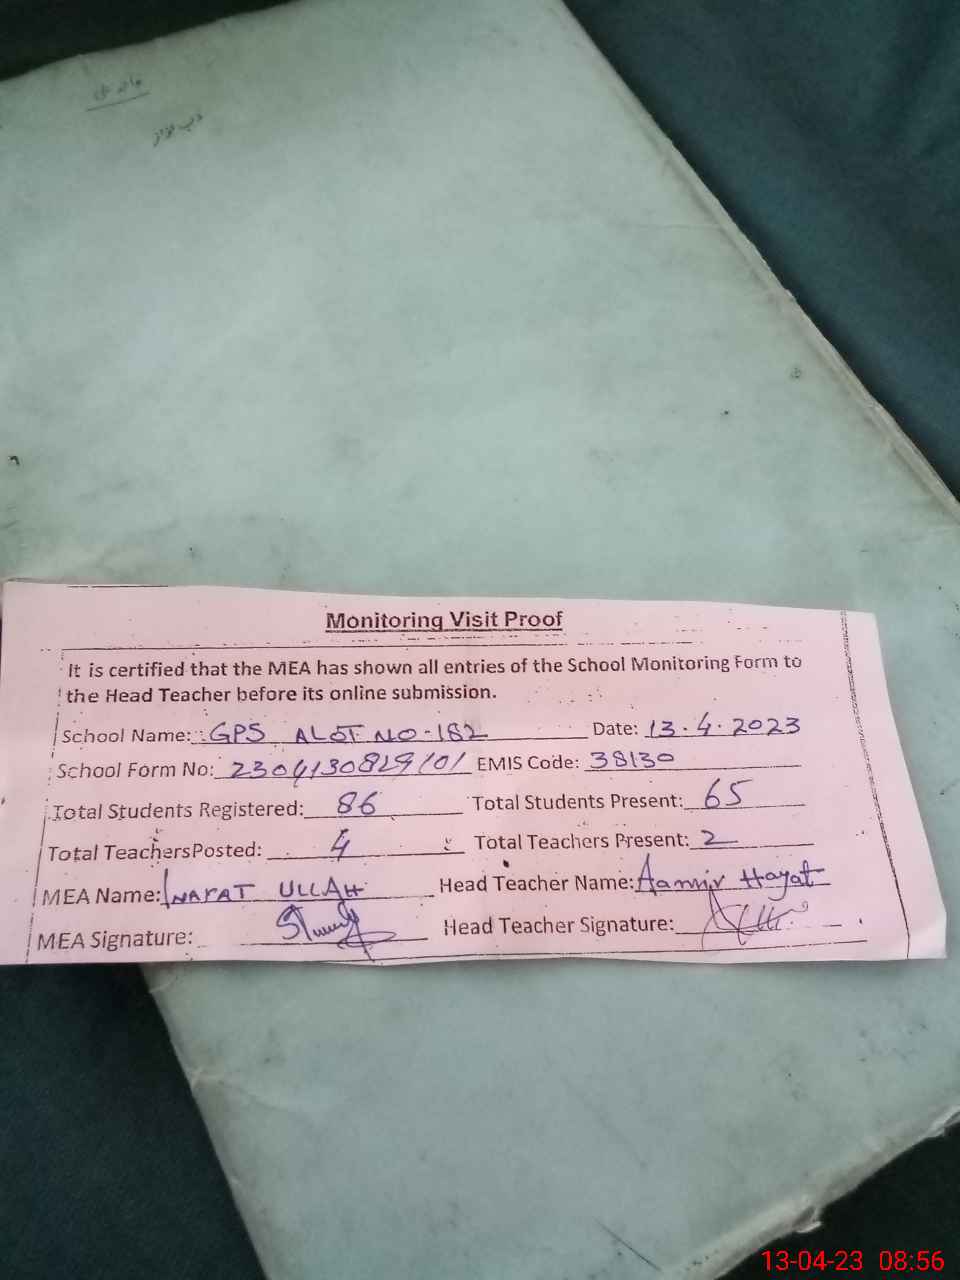 Monitoring Visit Proof
It is certified that the MEA has shown all entries of the School Monitoring Form to
the Head Teacher before its online submission.
School Name: GPS ALOT NO-182 Date: 13.4.2023
School Form No: 2304130829101 EMIS Code: 38130
Total Students Registered: 86 Total Students Present: 65
Total TeachersPosted: 4 Total Teachers Present: 2
MEA Name: INAYAT ULLAH Head Teacher Name: Aamir Hayat
MEA Signature: Head Teacher Signature:
13-04-23 08:56